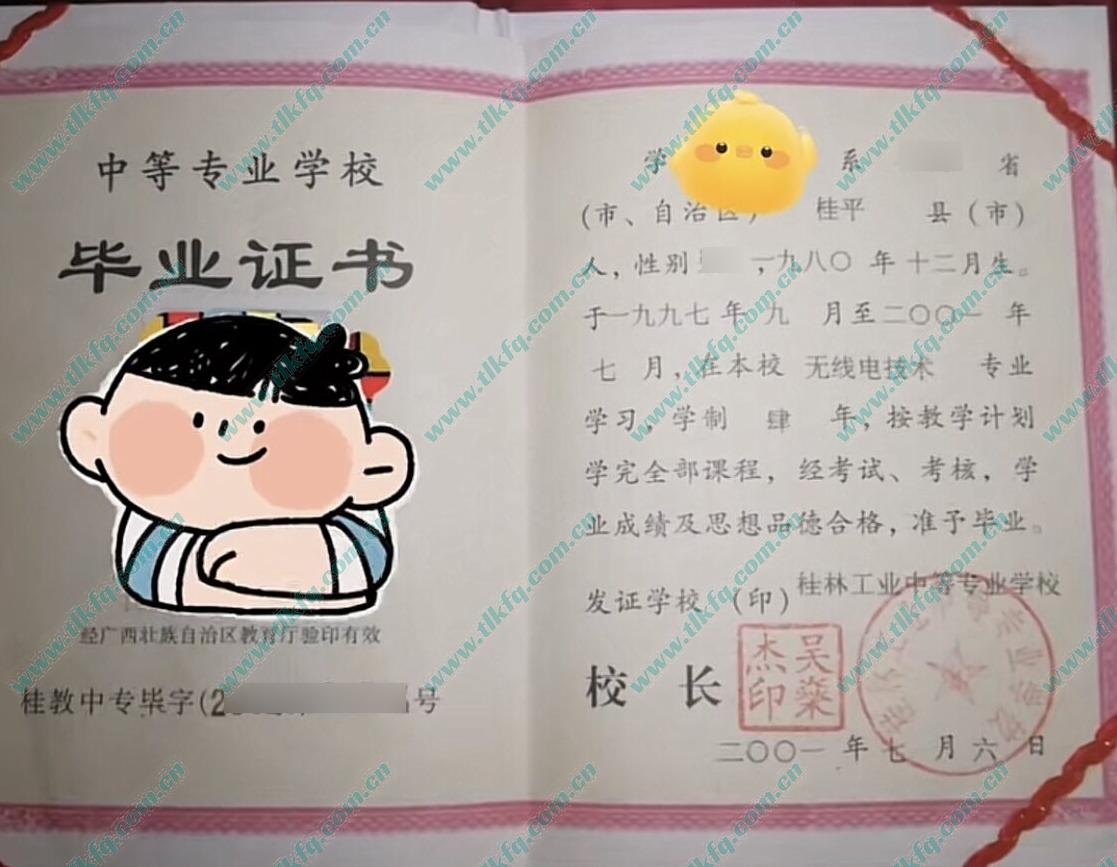 中等专业学校
毕业证书
经广西壮族自治区教育厅验印有效
桂教中专毕字(2 号
学 系 省
(市、自治区) 桂平 县(市)
人，性别 ，一九八〇年十二月生。
于一九九七年九 月至二〇〇一 年
七 月，在本校 无线电技术 专业
学习，学制 肆 年，按教学计划
学完全部课程，经考试、考核，学
业成绩及思想品德合格，准予毕业。
发证学校 (印) 桂林工业中等专业学校
校 长 吴燊杰印
二〇〇一 年七 月六 日
www.tlkfq.com.cn